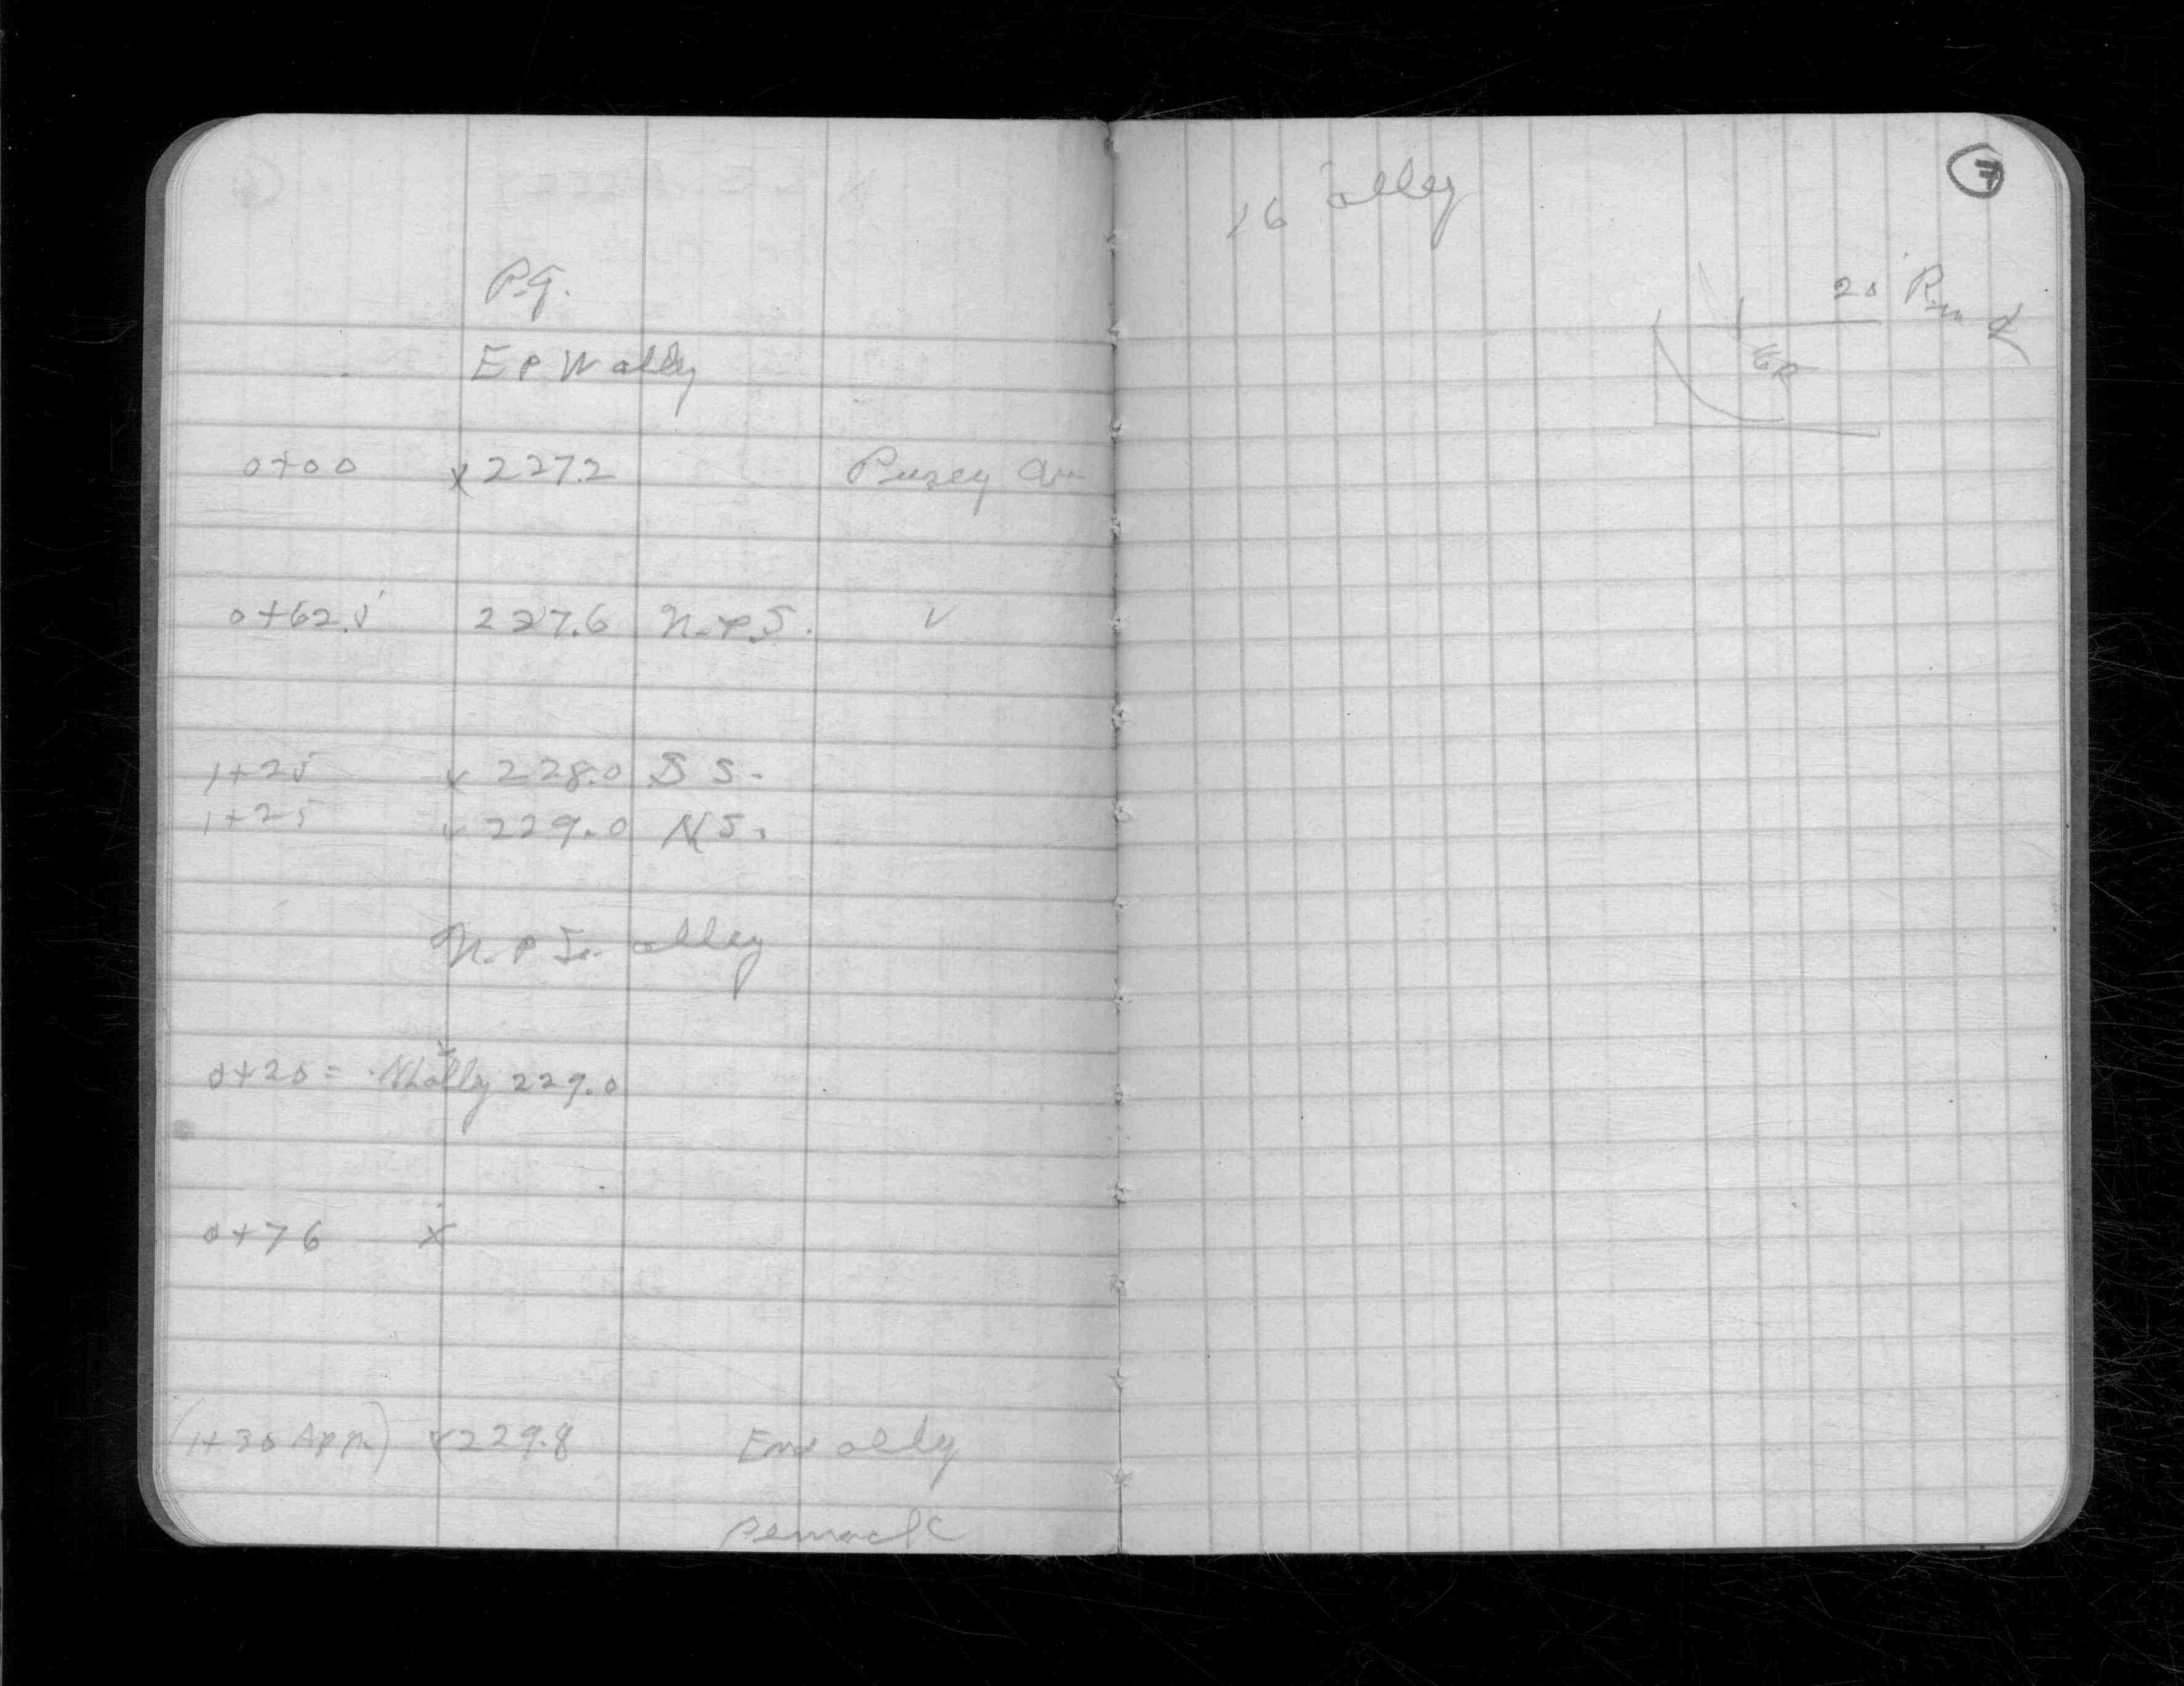 P.G.
E & W alley
0+00 x 227.2 Pusey Av
0+62.5 227.6 N. & S. v
1+25 x 228.0 S S.
1+25 x 229.0 N S.
N. & S. alley
0+20 = alley 229.0
0+76 x
(1+30 App.) x 229.8 End alley
16' alley
7
20' R
16 R